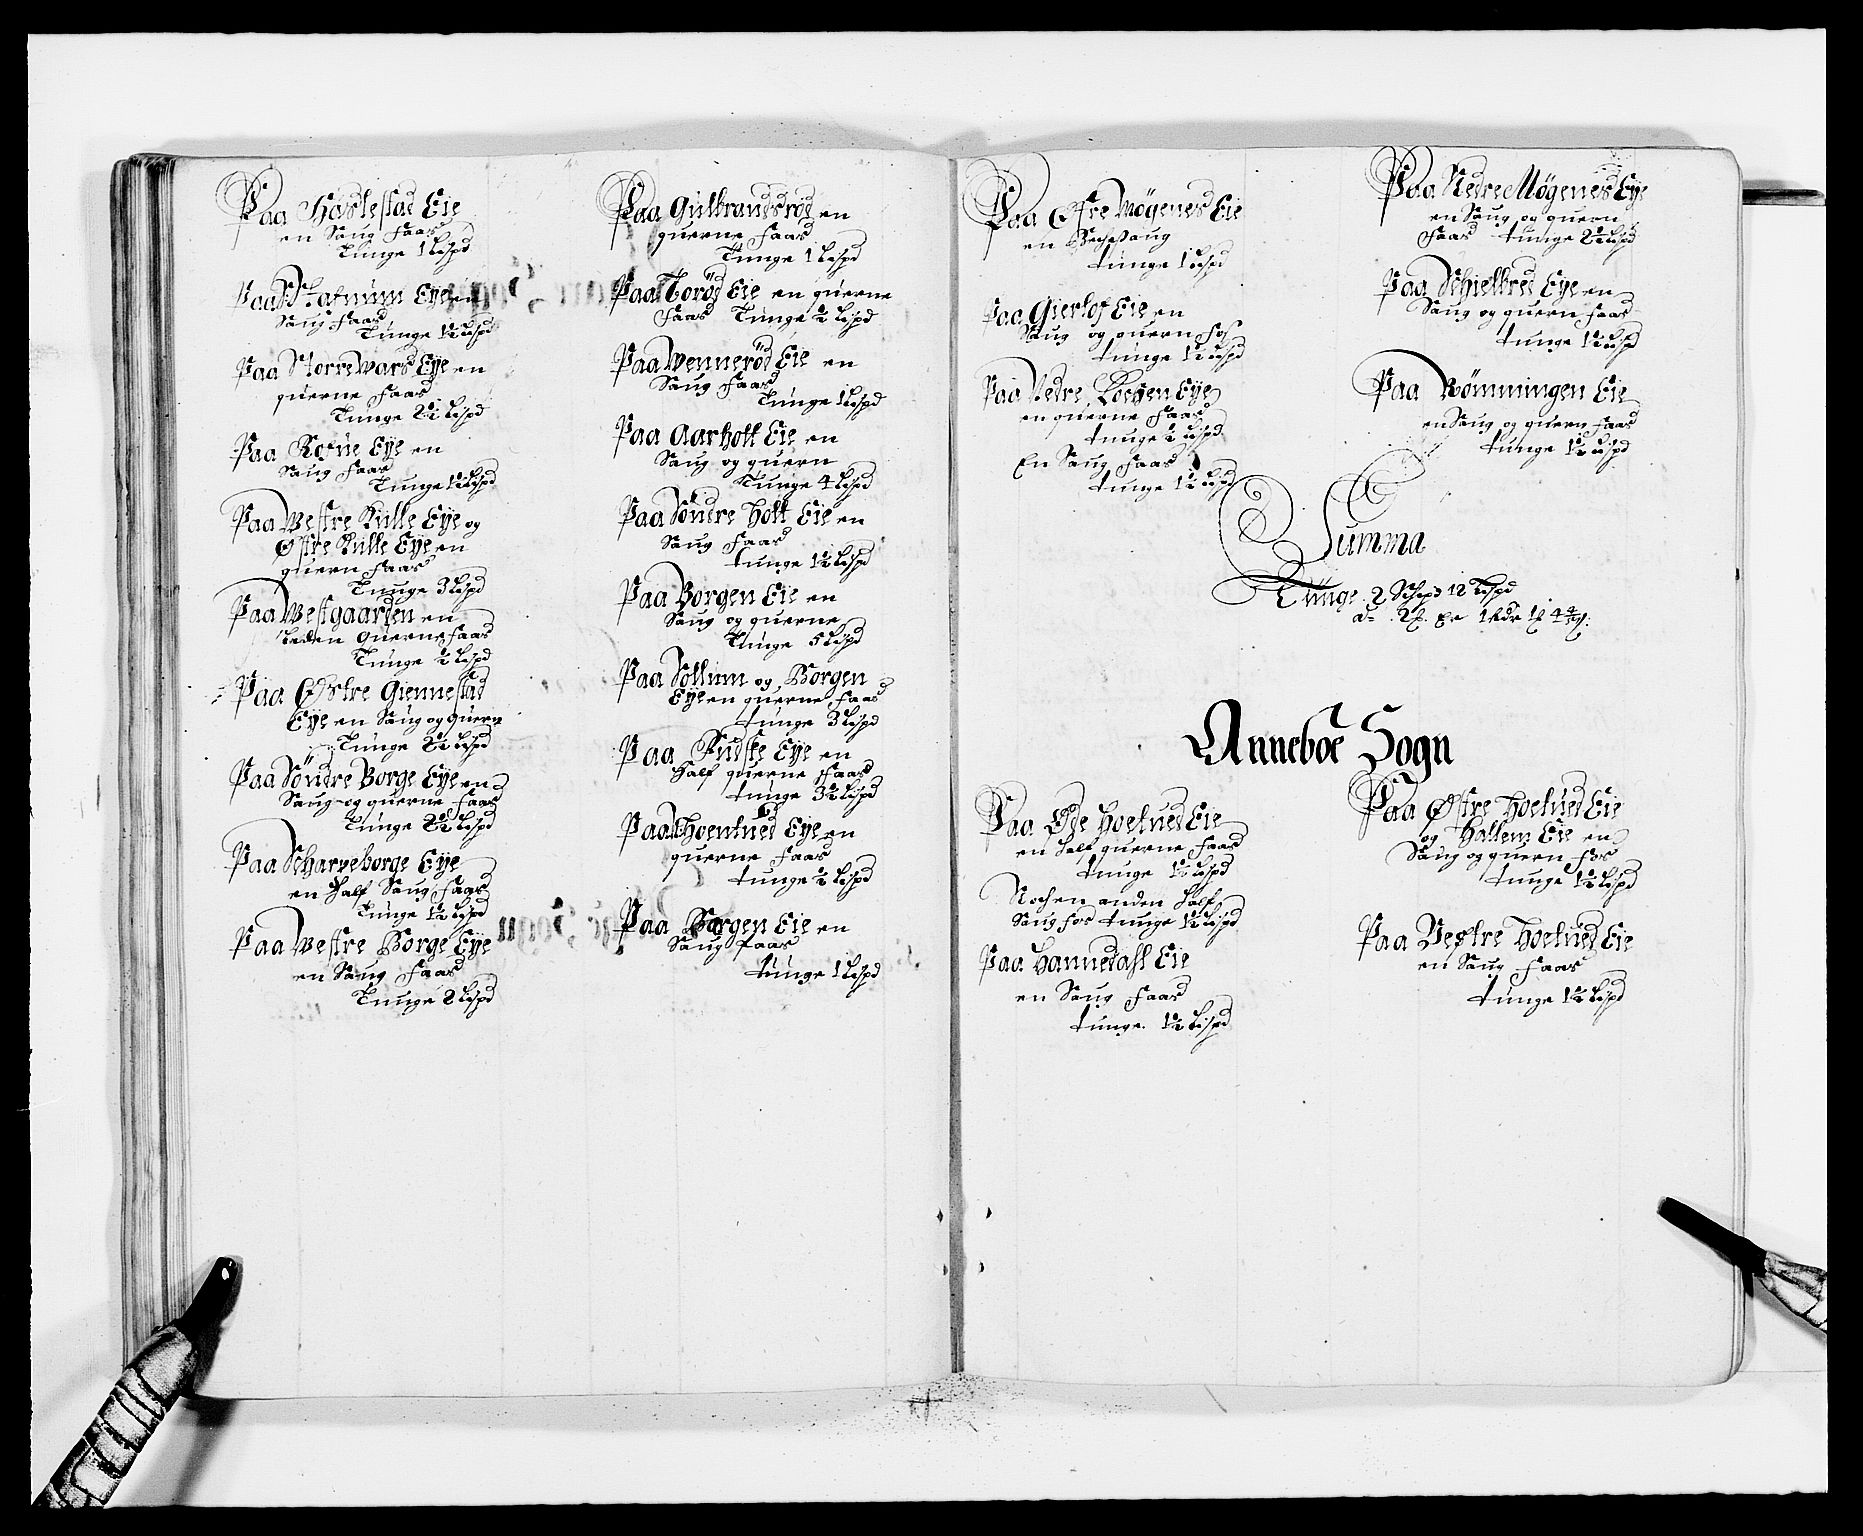 Paa Haslestad Eie
en Saug faas
Tunge 1 Lispd
Paa Eye en
Saug faas
Tunge 1½ Lispd
Paa Storre Wars Eye en
querne faas
Tunge 2½ Lispd
Paa Eye en
Saug faas
Tunge 1½ Lispd
Paa Westre Kulle Eye og
Østre Kulle Eye en
quern faas
Tunge 3 Lispd
Paa Westgaarden en
liden querne faas
Tunge ½ Lispd
Paa Østre Giennestad
Eye en Saug og quern
Tunge 2½ Lispd
Paa Søndre Borge Eye en
Saug og querne faas
Tunge 2½ Lispd
Paa Scharpeborge Eye
en Half Saug faas
Tunge 1½ Lispd
Paa Westre Borge Eye
en Saug faas
Tunge 2 Lispd
Paa Gulbrandsrød en
querne faas
Tunge 1 Lispd
Paa Torød Eie en querne
faas Tunge ½ Lispd
Paa Wennerød Eie en
Saug faas
Tunge 1 Lispd
Paa Aarholt Eie en
Saug og quern
Tunge 4 Lispd
Paa Søndre Holt Eie en
Saug faas
tunge 1½ Lispd
Paa Borgen Eie en
Saug og querne
Tunge 5 Lispd
Paa Sollum og Borgen
Eye en querne faas
tunge 3 Lispd
Paa Eye en
Half querne faas
tunge 3½ Lispd
Paa Eye en
querne faas
tunge ½ Lispd
Paa Borgen Eie en
Saug faas
tunge 1 Lispd
Paa Øfre Møgenes Eie
en saug
tunge 1 Lispd
Paa Gierlof Eie en
Saug og quern fos
tunge 1½ Lispd
Paa Nedre Eye
en querne faas
tunge ½ Lispd
En Saug faas
tunge 1½ Lispd
Paa Nedre Møgenes Eye
en Saug og quern
faas tunge 2½ Lispd
Paa Schielbred Eye en
Saug og quern faas
tunge 1½ Lispd
Paa Bømmingen Eie
en Saug og quern faas
tunge 1½ Lispd
Summa
Tunge 2 Schpd 12 Lispd
Anneboe Sogn
Paa Øde Hoelued Eie
en half querne faas
tunge 1½ Lispd
Noch en anden half
Saug fos tunge 1½ Lispd
Paa Hannedahl Eie
en Saug faas
tunge 1½ Lispd
Paa Østre Hoelued Eie
og Hallem Eie en
Saug og quern fos
tunge 1½ Lispd
Paa Vestre Hoelued Eie
en Saug faas
tunge 1½ Lispd